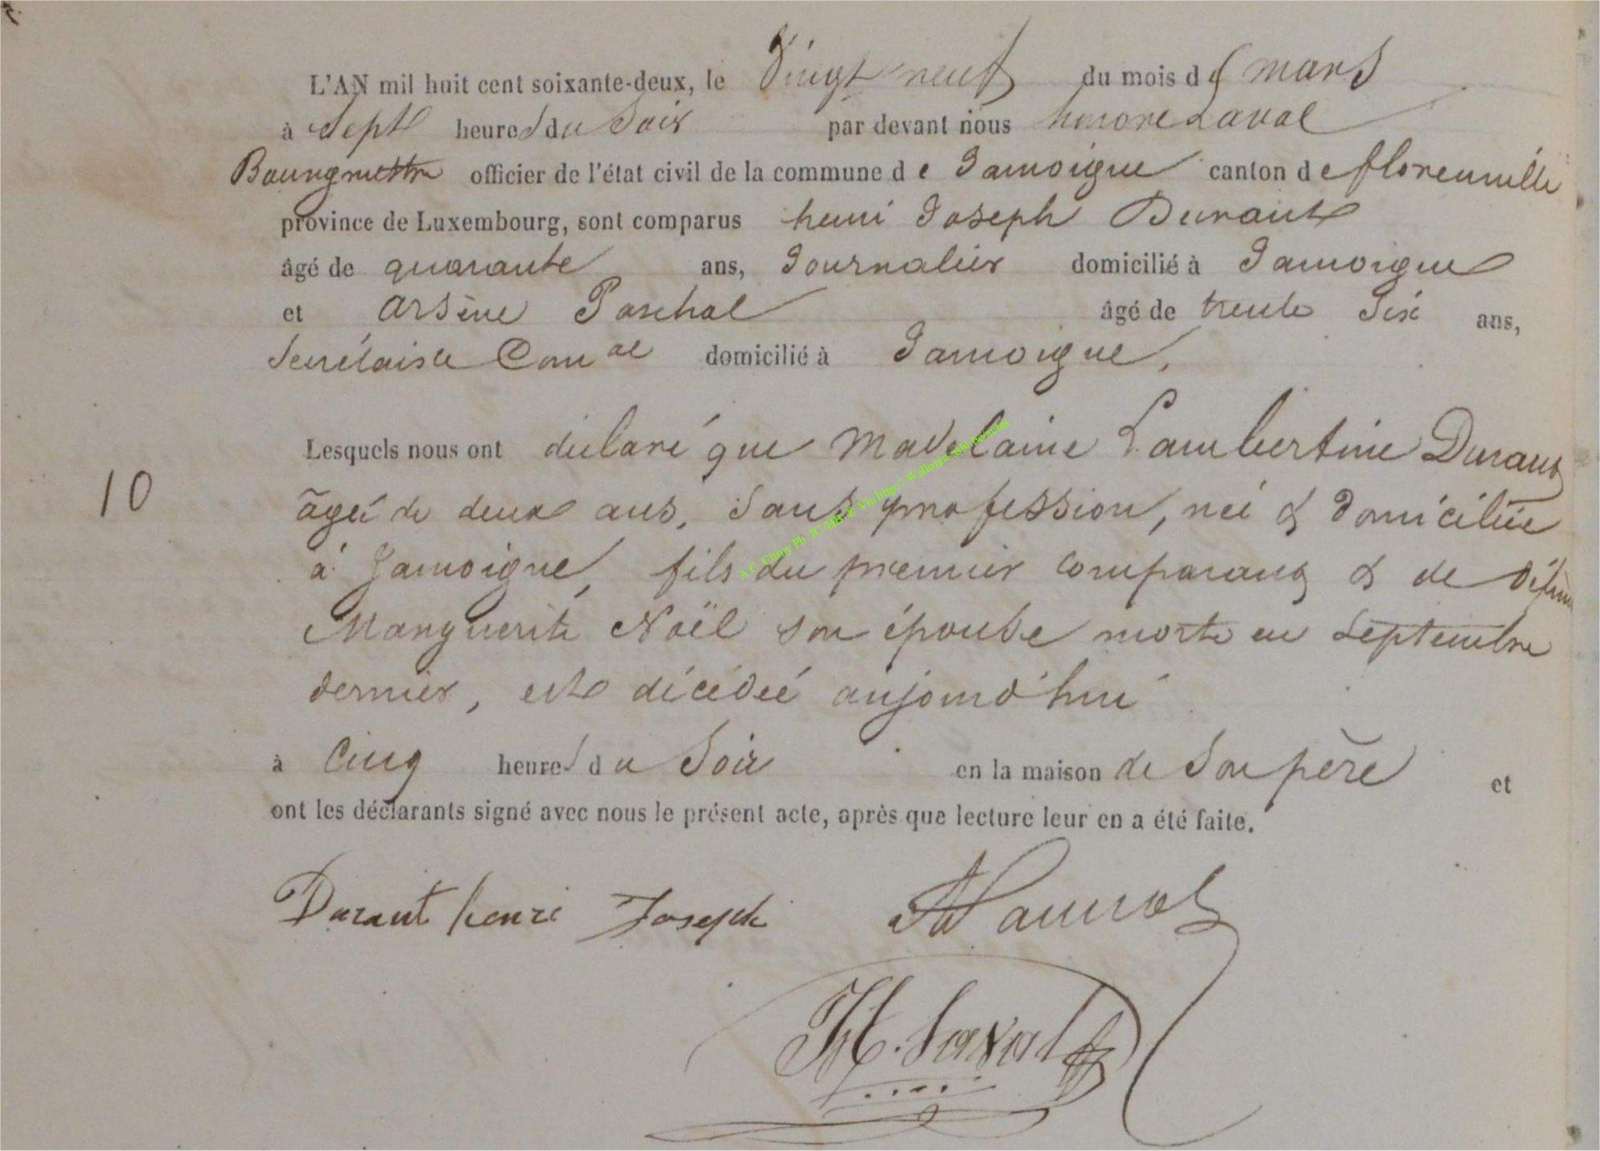 L'AN mil huit cent soixante-deux, le Vingt neuf du mois de mars
à Sept heures du Soir par devant nous honoré Laval
Bourgmestre officier de l'état civil de la commune de Jamoigne canton de florenville
province de Luxembourg, sont comparus henri Joseph Durant
âgé de quarante ans, Journalier domicilié à Jamoigne
et arsène Paschal âgé de trente Six ans,
Secrétaire Comal domicilié à Jamoigne,
Lesquels nous ont déclaré que Madelaine Lambertine Durant
10 âgée de deux ans, Sans profession, née & domiciliée
à Jamoigne, fils du premier comparant & de défunte
Marguerite Noël son épouse morte en Septembre
dernier, est décédée aujourd'hui
à Cinq heures du Soir en la maison de Son père et
ont les déclarants signé avec nous le présent acte, après que lecture leur en a été faite.
Durant henri Joseph
H. Laval